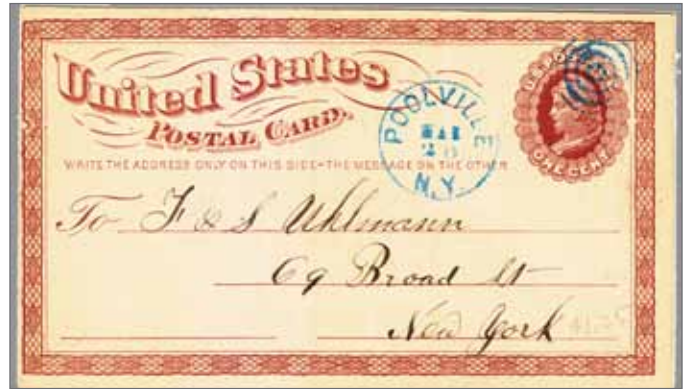 United States
POSTAL CARD.
WRITE THE ADDRESS ONLY ON THIS SIDE-THE MESSAGE ON THE OTHER
POOLVILLE
N.Y.
ONE CENT
To F & S Uhlmann
69 Broad St
New York